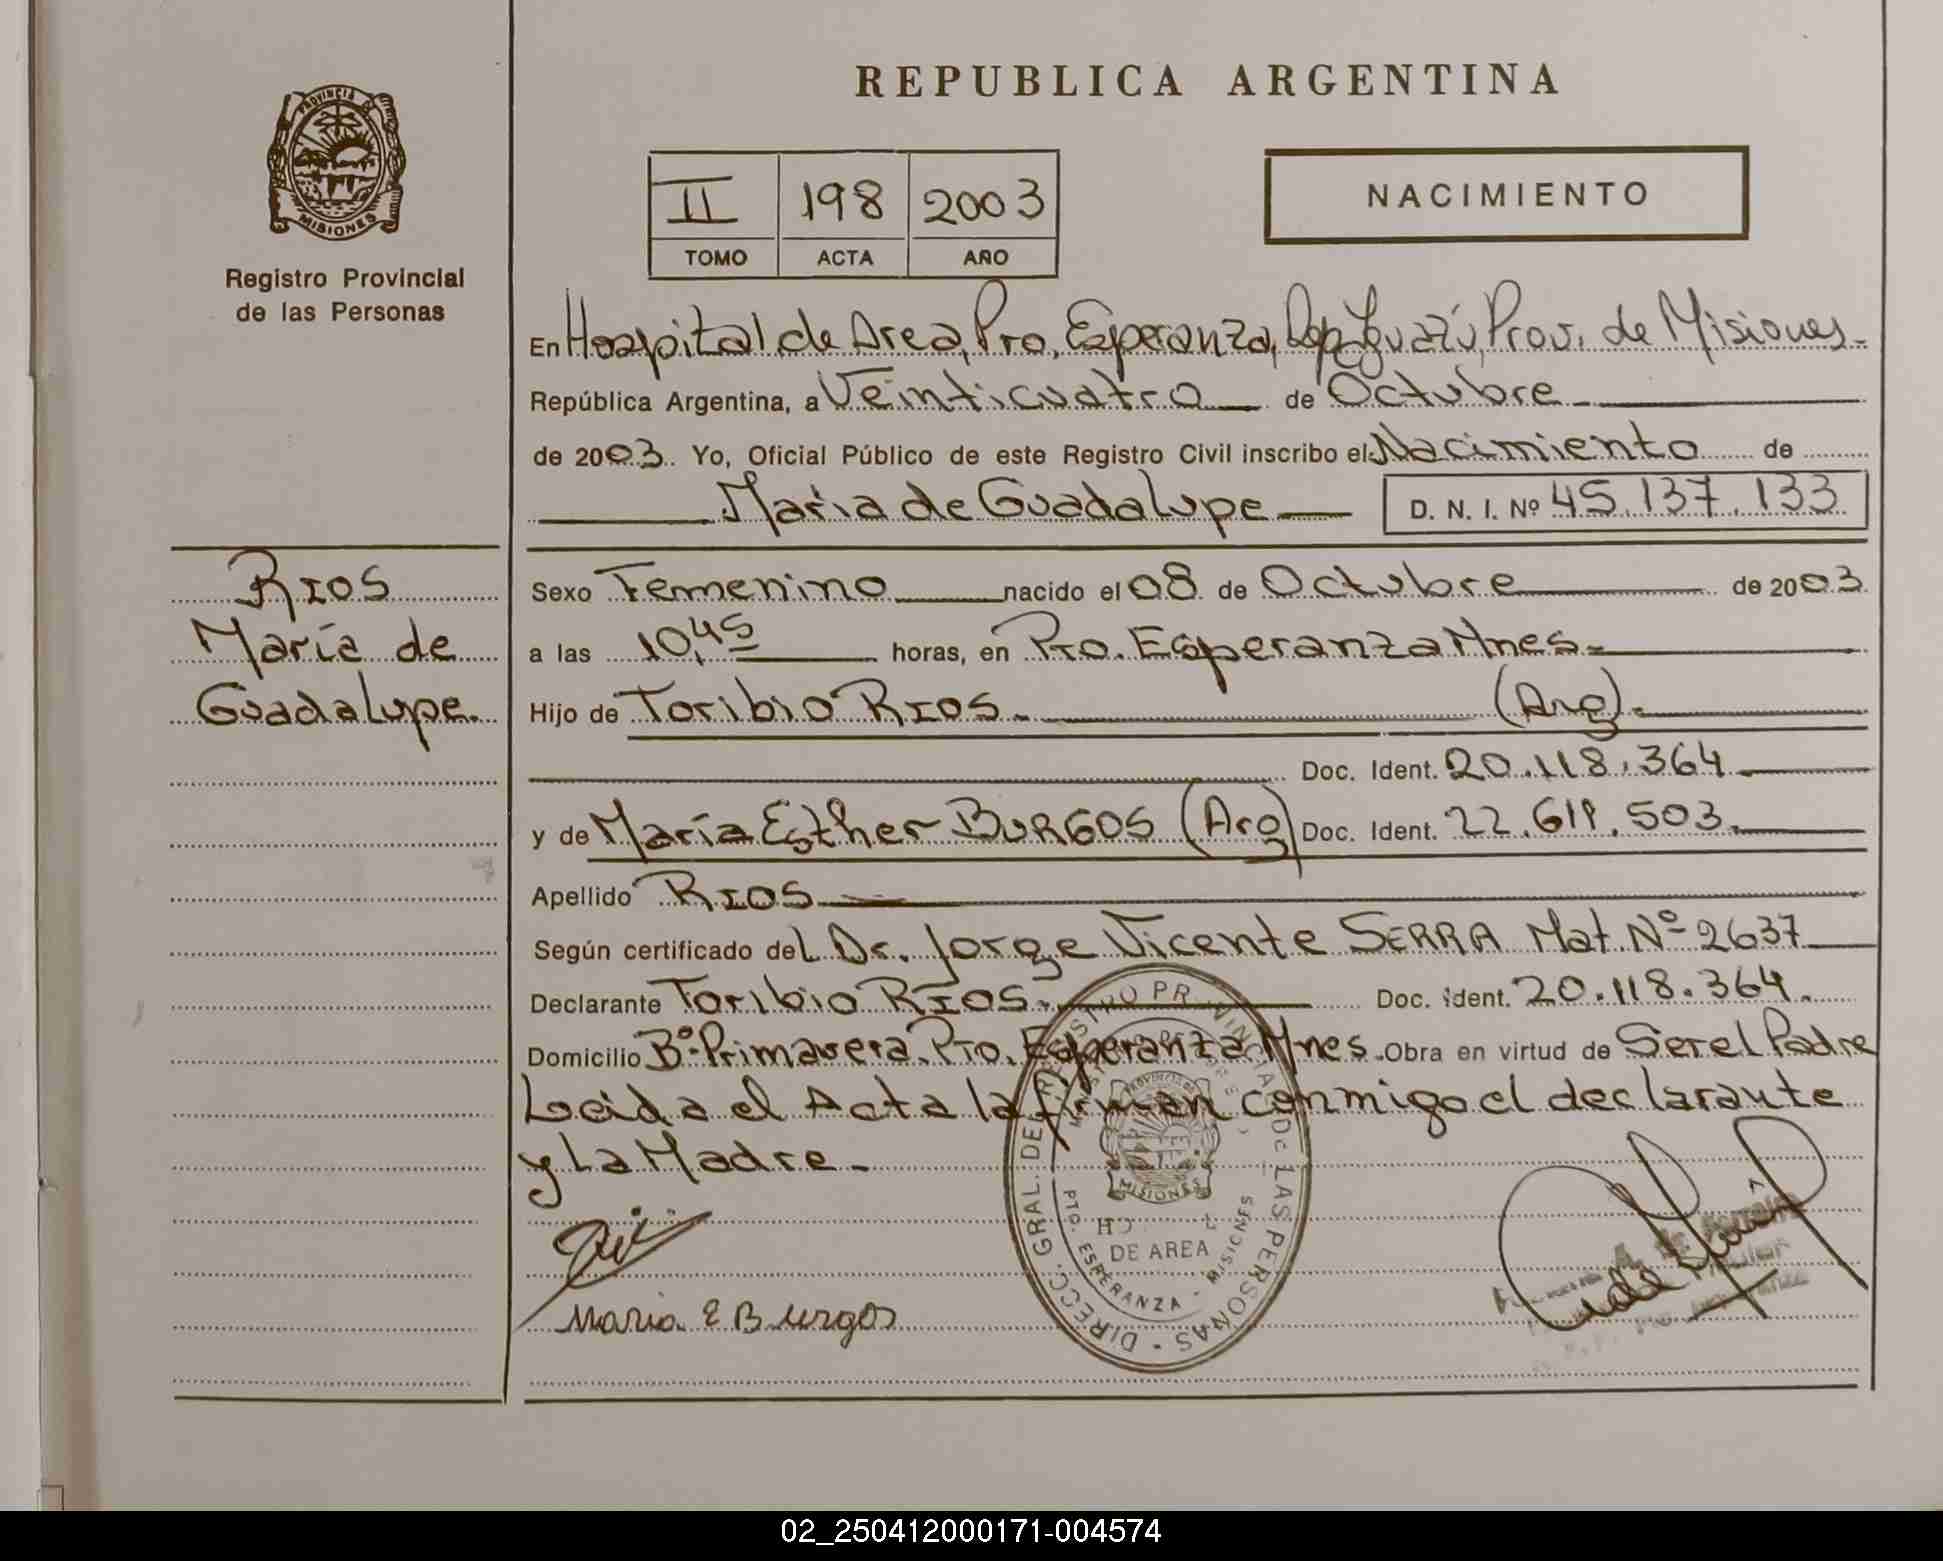 REPUBLICA ARGENTINA
PROVINCIA DE
MISIONES
Registro Provincial
de las Personas
II 198 2003
TOMO ACTA AÑO
NACIMIENTO
En Hospital de Area, Pto. Esperanza, Dep. Iguazú, Prov. de Misiones.-
República Argentina, a Veinticuatro de Octubre
de 2003. Yo, Oficial Público de este Registro Civil inscribo el Nacimiento de
Maria de Guadalupe D. N. I. Nº 45.137.133
RIOS
María de
Guadalupe.
Sexo Femenino nacido el 08 de Octubre de 2003
a las 10,45 horas, en Pto. Esperanza Mnes.
Hijo de Toribio RIOS.- (Arg).
Doc. Ident. 20.118.364
y de María Esther BURGOS (Arg) Doc. Ident. 22.611.503.
Apellido RIOS
Según certificado del Dr. Jorge Vicente SERRA Mat. Nº 2637
Declarante Toribio RIOS. Doc. Ident. 20.118.364.
Domicilio Bº Primavera. Pto. Esperanza Mnes. Obra en virtud de Ser el Padre
Leida el Acta la firman conmigo el declarante
y La Madre.-
DIRECC. GRAL. DE REGISTRO PROVINCIAL DE LAS PERSONAS
PROVINCIA DE
MISIONES
DE AREA
PTO. ESPERANZA - MISIONES
Maria E Burgos
02_250412000171-004574